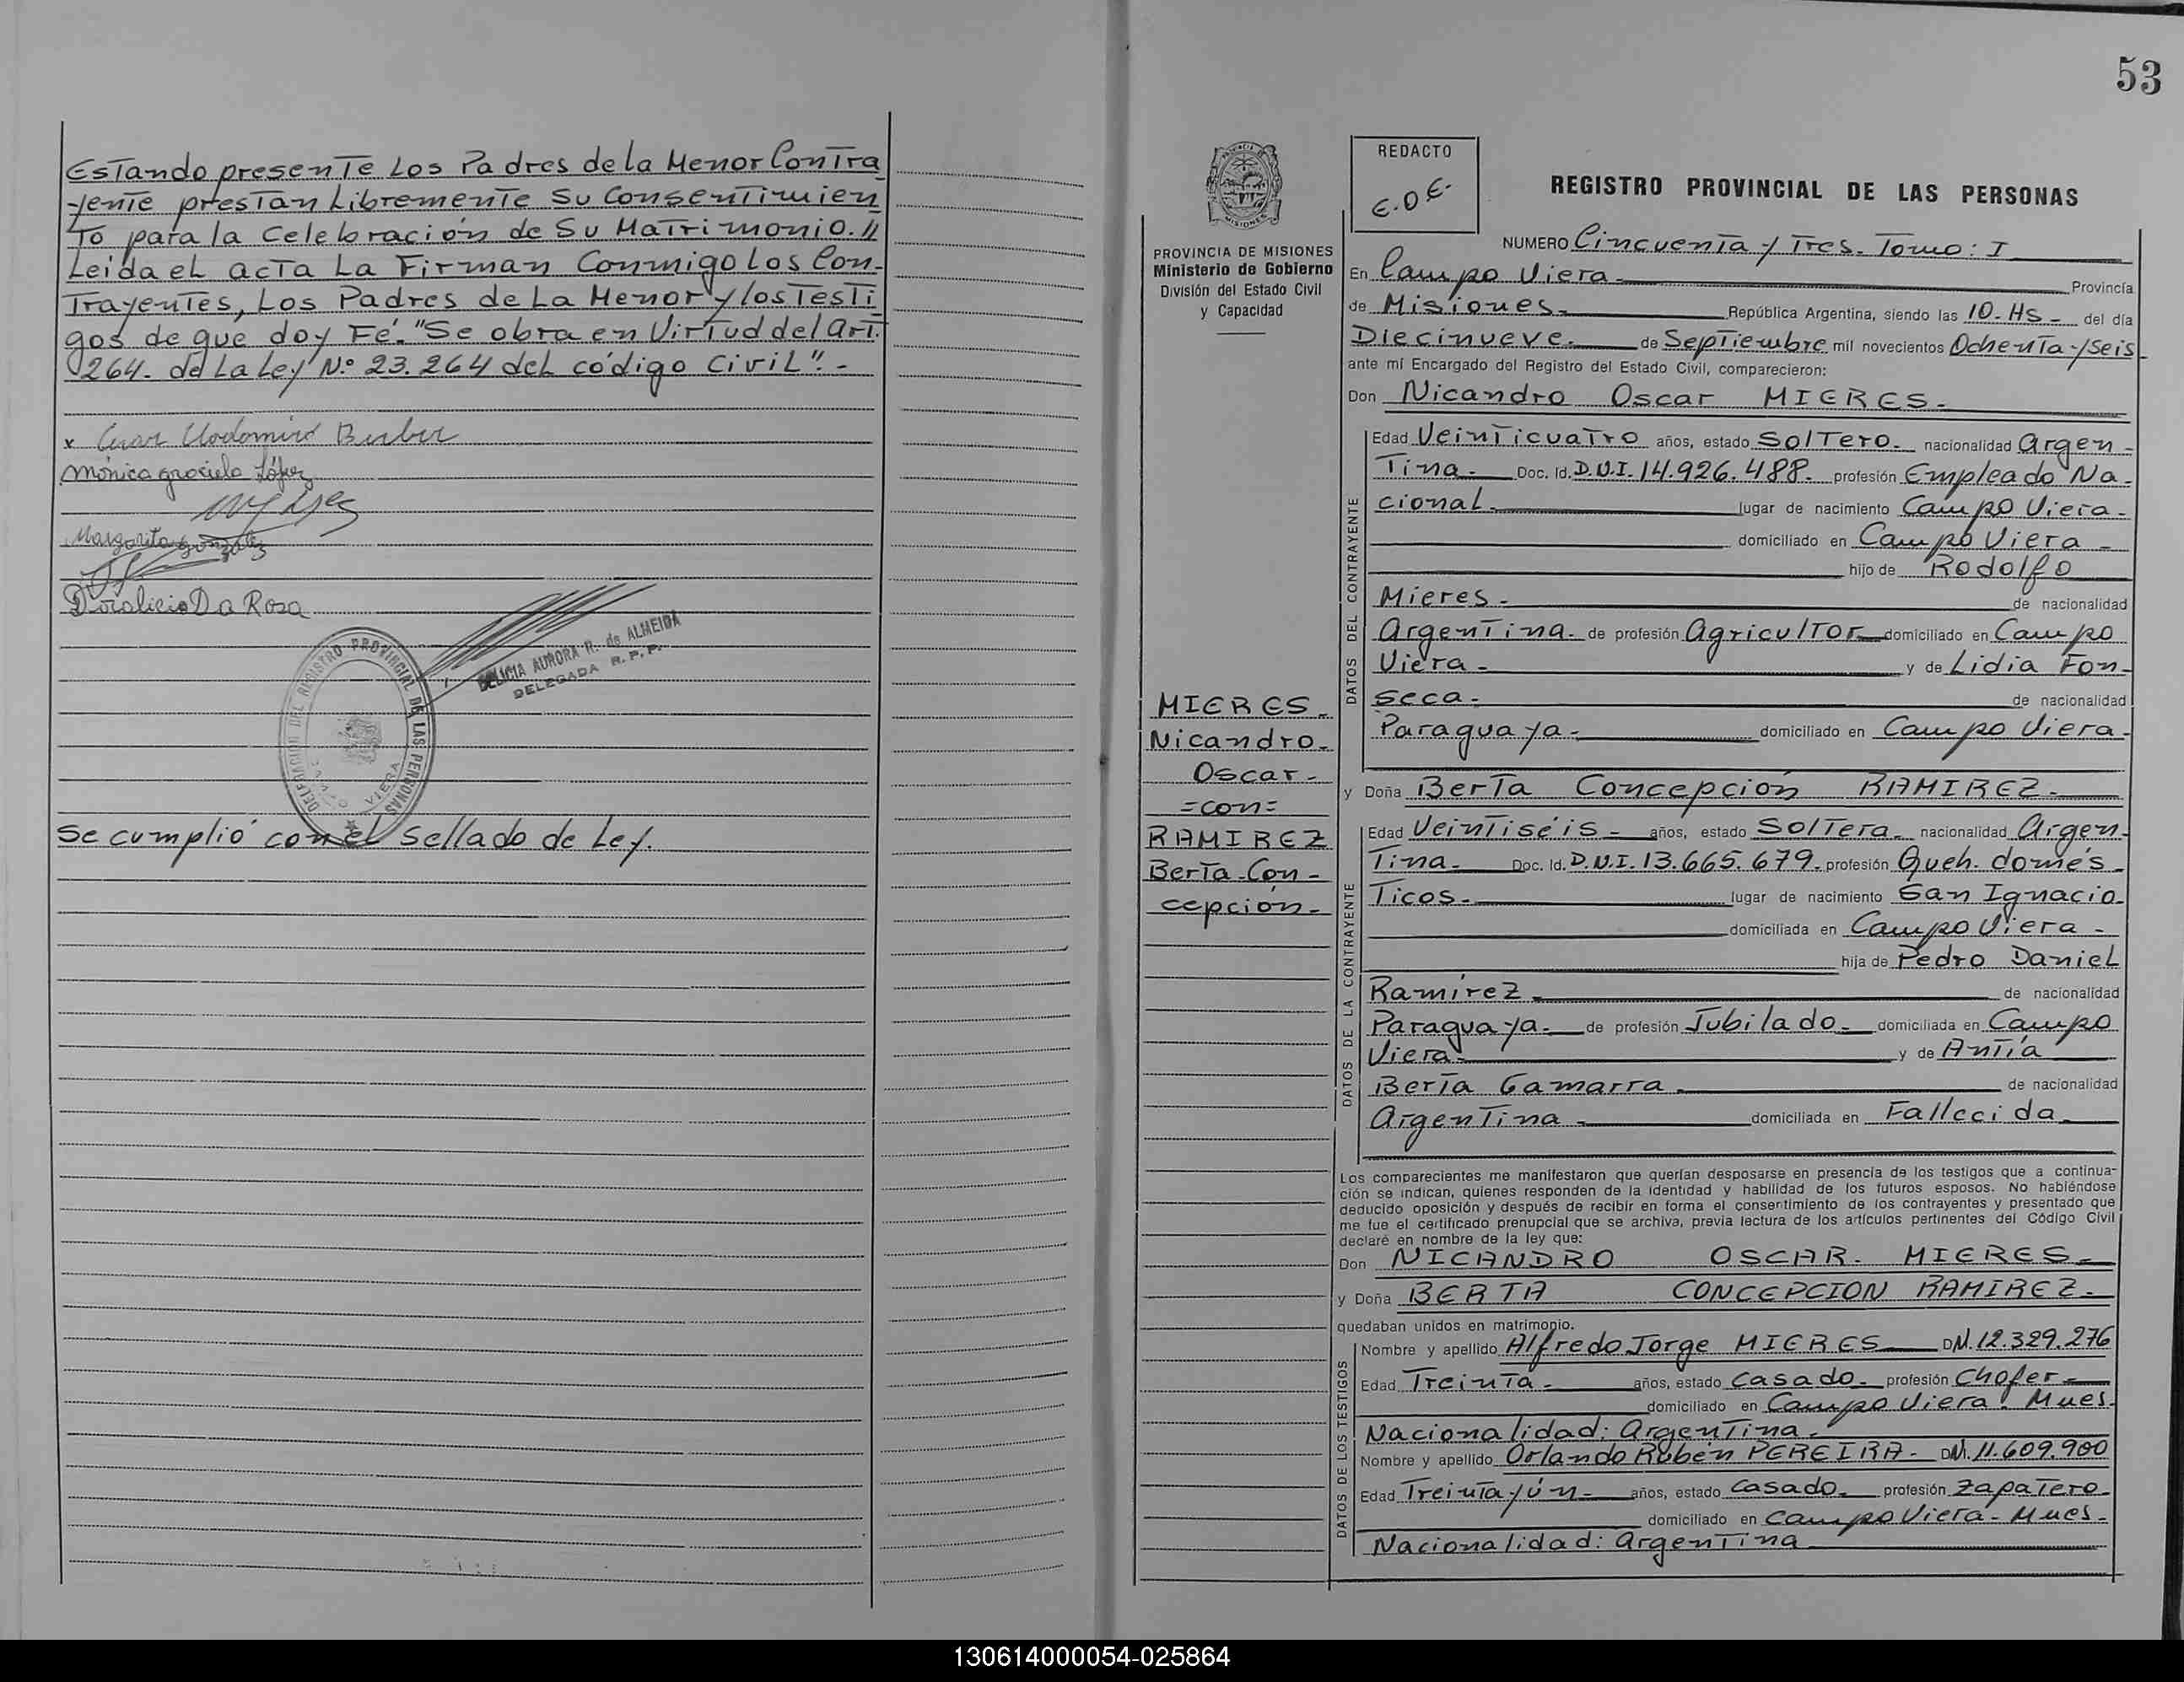 Estando presente Los Padres de la Menor Contra
yente prestan Libremente su Consentimien
to para la Celebración de Su Matrimonio.//
Leida el acta La Firman Conmigo los Con-
Trayentes, Los Padres de La Menor y los Testi
gos de que doy Fé. "Se obra en Virtud del Art.
264. de La Ley N.º 23.264 del código Civil". -
x Cesar Clodomiro
Mónica graciela López
Margarita gonzalez
Doralicio Da Rosa
DELICIA AURORA R. de ALMEIDA
DELEGADA R. P. P.
DELEGACION DEL REGISTRO PROVINCIAL DE LAS PERSONAS
CAMPO VIERA
Se cumplió con el sellado de Ley.
53
PROVINCIA DE MISIONES
Ministerio de Gobierno
División del Estado Civil
y Capacidad
MIERES
Nicandro-
Oscar-
=con=
RAMIREZ
Berta-Con-
cepción-
REDACTO
E.O.E.
REGISTRO PROVINCIAL DE LAS PERSONAS
NUMERO Cincuenta y Tres. Tomo: I
En Campo Viera- Provincia
de Misiones. República Argentina, siendo las 10-Hs- del día
Diecinueve. de Septiembre mil novecientos Ochenta y Seis
ante mi Encargado del Registro del Estado Civil, comparecieron:
Don Nicandro Oscar MIERES-
DATOS DEL CONTRAYENTE
Edad Veinticuatro años, estado Soltero. nacionalidad Argen-
tina. Doc. Id. D.N.I. 14.926.488. profesión Empleado Na-
cional. lugar de nacimiento Campo Viera-
domiciliado en Campo Viera-
hijo de Rodolfo
Mieres- de nacionalidad
Argentina. de profesión Agricultor domiciliado en Campo
Viera- y de Lidia Fon-
seca. de nacionalidad
Paraguaya- domiciliado en Campo Viera-
y Doña Berta Concepción RAMIREZ-
DATOS DE LA CONTRAYENTE
Edad Veintiséis- años, estado Soltera- nacionalidad Argen-
tina- Doc. Id. D.N.I. 13.665.679. profesión Queh. domés-
ticos- lugar de nacimiento San Ignacio-
domiciliada en Campo Viera-
hija de Pedro Daniel
Ramírez de nacionalidad
Paraguaya- de profesión Jubilado- domiciliada en Campo
Viera- y de Antia
Berta Gamarra- de nacionalidad
Argentina- domiciliada en Fallecida
Los comparecientes me manifestaron que querían desposarse en presencia de los testigos que a continua-
ción se indican, quienes responden de la identidad y habilidad de los futuros esposos. No habiéndose
deducido oposición y después de recibir en forma el consentimiento de los contrayentes y presentado que
me fue el certificado prenupcial que se archiva, previa lectura de los artículos pertinentes del Código Civil
declaré en nombre de la ley que:
Don NICANDRO OSCAR. MIERES-
y Doña BERTA CONCEPCION RAMIREZ-
quedaban unidos en matrimonio.
DATOS DE LOS TESTIGOS
Nombre y apellido Alfredo Jorge MIERES DNI. 12.329.276
Edad Treinta- años, estado Casado- profesión Chofer-
domiciliado en Campo Viera. Mnes.
Nacionalidad: Argentina.
Nombre y apellido Orlando Rubén PEREIRA- DNI. 11.609.900
Edad Treinta y ún- años, estado Casado. profesión Zapatero
domiciliado en Campo Viera- Mnes-
Nacionalidad: Argentina
130614000054-025864